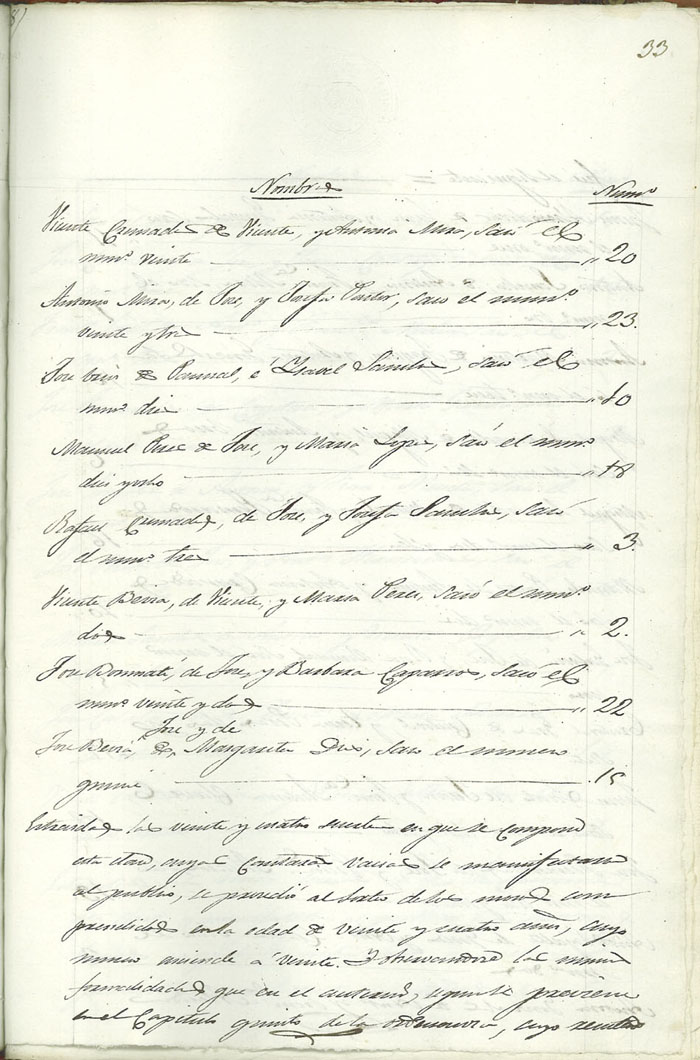 33
Nombres Numº
Vicente Quesada de Vicente, y Antonia Mira, sacó el
numº veinte 20
Antonio Mira, de José, y Josefa Pastor, saco el numº
veinte y tres 23.
José de Pascual, é Ysavel Sanches, sacó el
numº dies 10
Manuel Peres de José, y Maria Lopes, sacó el numº
dies y ocho 18
Rafael Quesada, de José, y Josefa Sanches, sacó
el numº tres 3.
Vicente Beviá, de Vicente, y Maria Peres, sacó el numº
dos 2.
José Bonmatí, de José, y Barbara Caparros, sacó el
numº veinte y dos 22
José y de
José Beviá, de Margarita Dies, saco el numero
quince 15
las veinte y cuatro suertes en que se compone
esta clase, cuyas vacias se manifestaron
al publico, se procedió al sorteo de los mosos com
prendidos en la edad de veinte y cuatro años, cuyo
numero asciende á veinte. Y observandose las mismas
formalidades que en el anterior, segun se previene
en el Capitulo quinto de la ordenansa, cuyo resultado